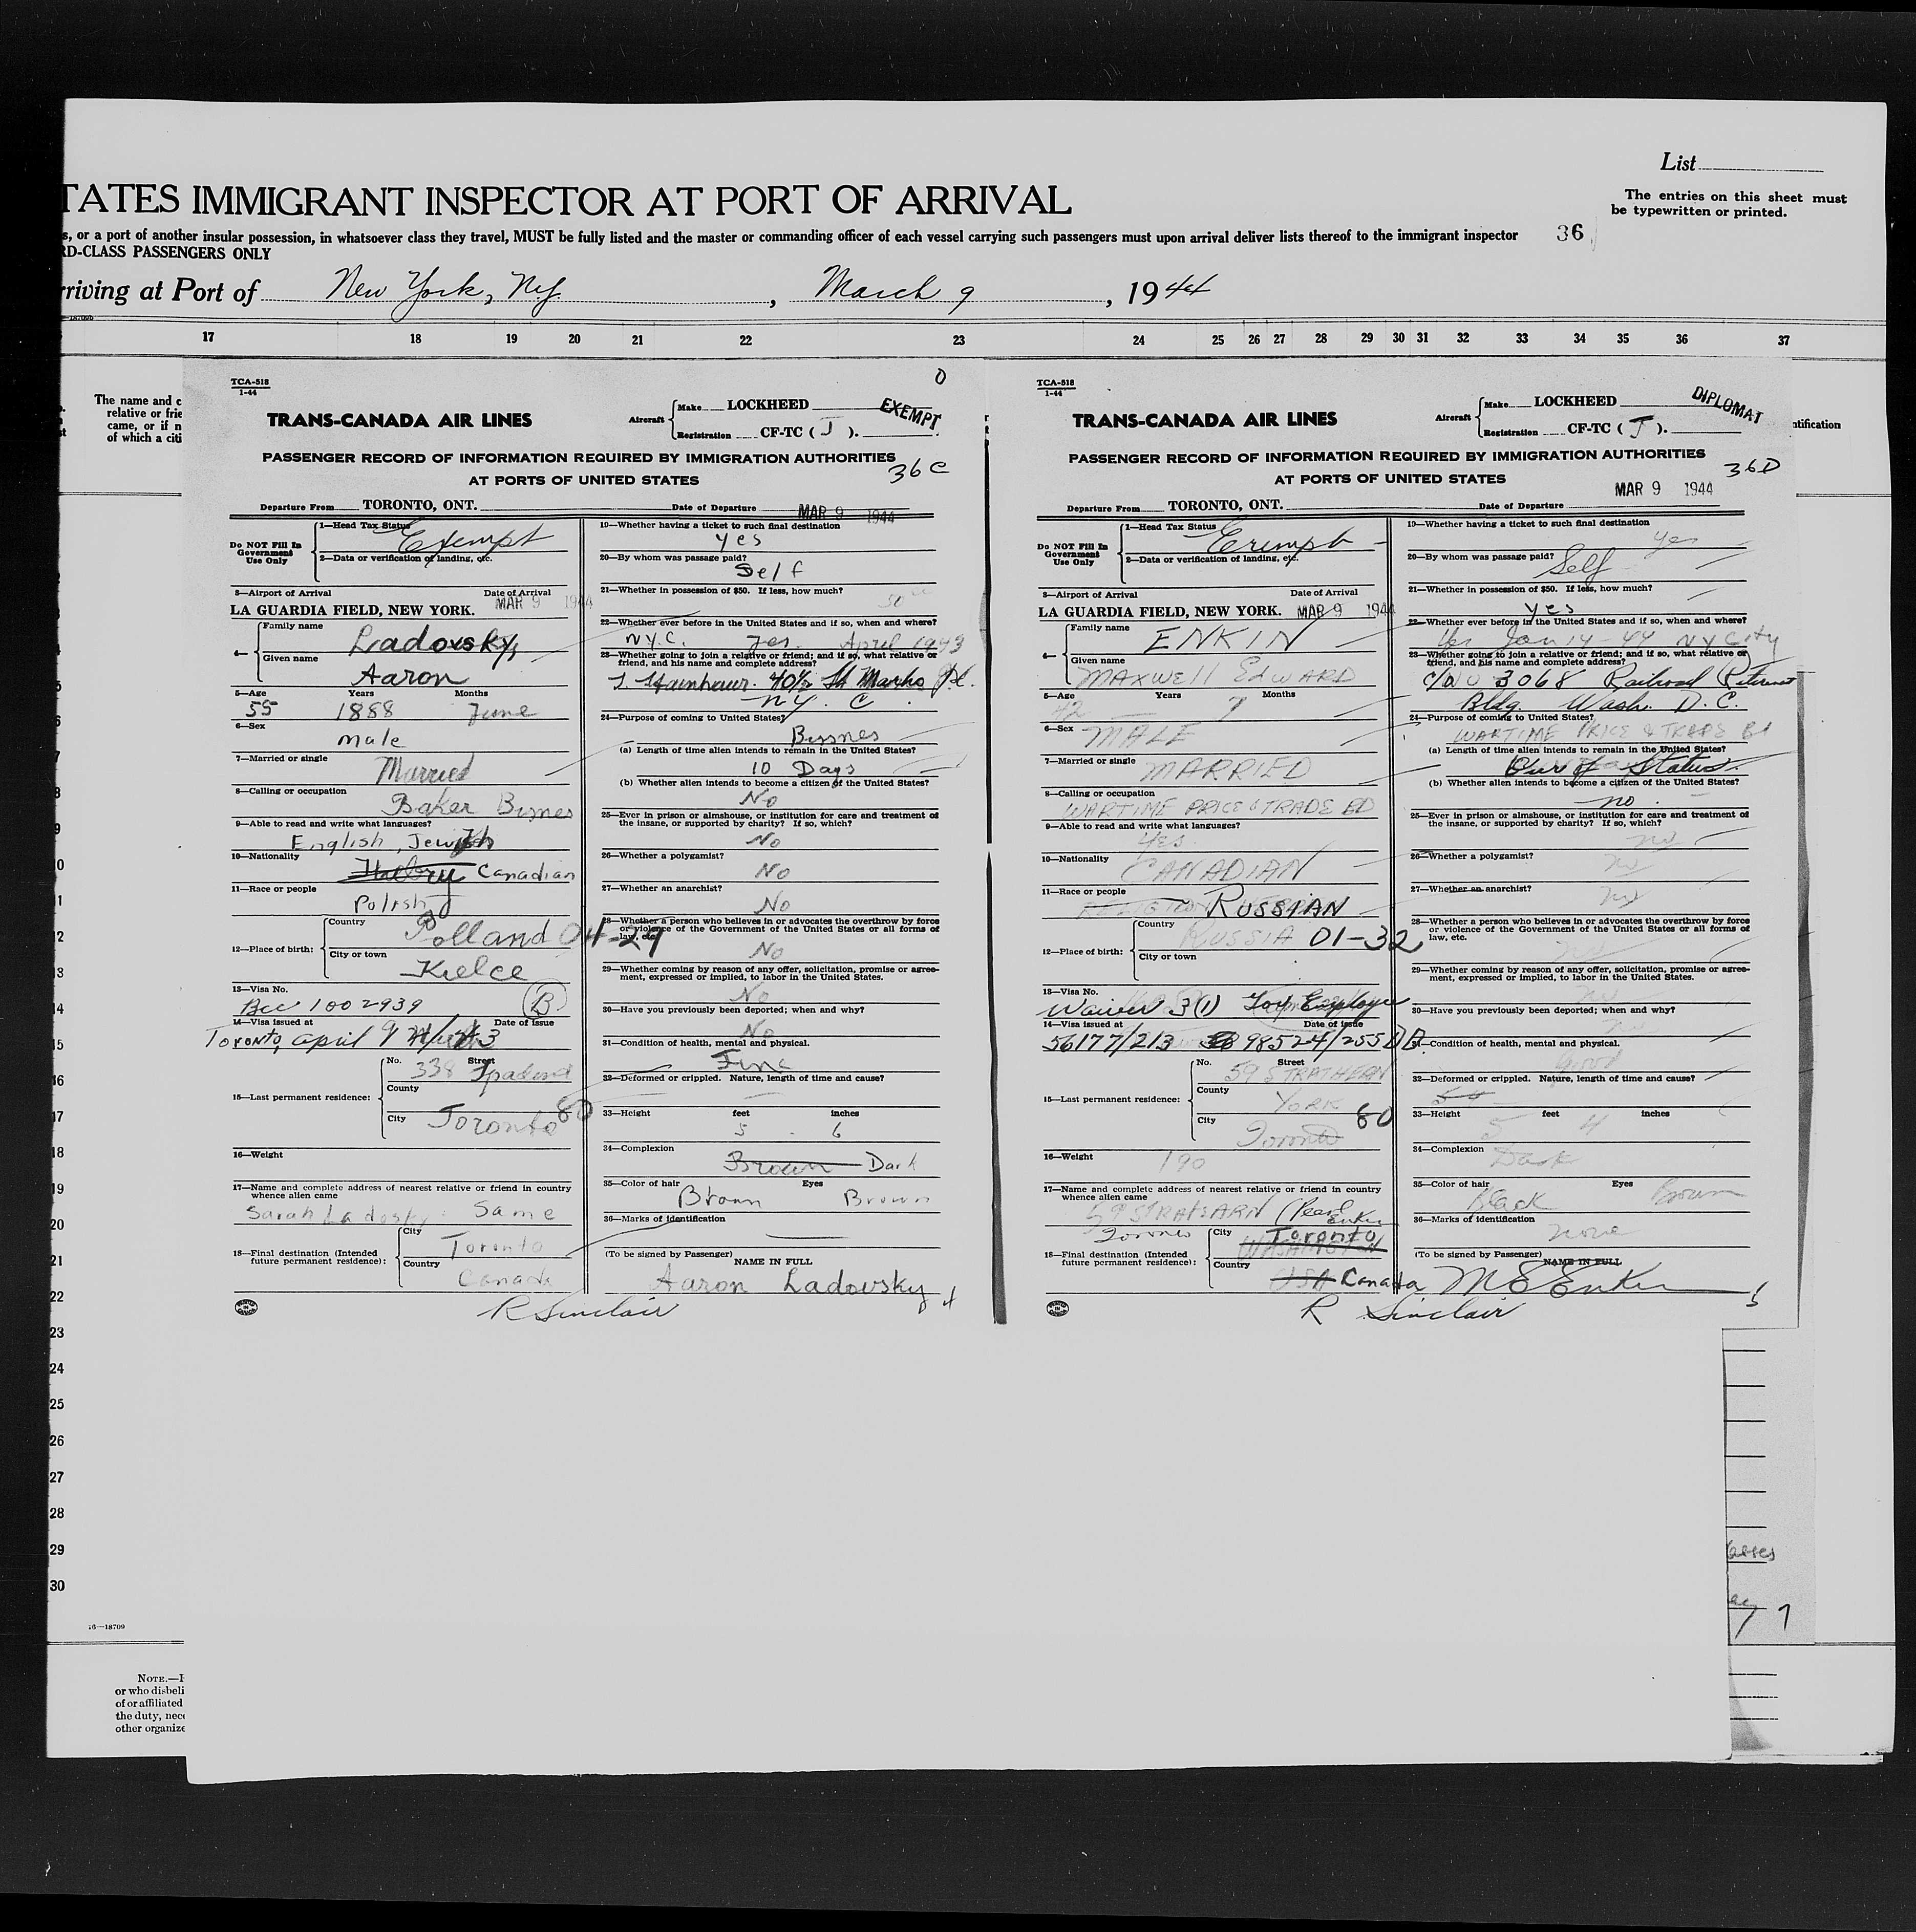 List
The entries on this sheet must
be typewritten or printed.
TATES IMMIGRANT INSPECTOR AT PORT OF ARRIVAL
s, or a port of another insular possession, in whatsoever class they travel, MUST be fully listed and the master or commanding officer of each vessel carrying such passengers must upon arrival deliver lists thereof to the immigrant inspector
36
RD-CLASS PASSENGERS ONLY
rriving at Port of New York, N.Y. , March 9 , 1944
17 18 19 20 21 22 23 24 25 26 27 28 29 30 31 32 33 34 35 36 37
The name and c
relative or frie
came, or if n
of which a citi
TCA-518
1-44
0
TRANS-CANADA AIR LINES
Aircraft
Make LOCKHEED
Registration CF-TC ( J ).
EXEMPT
PASSENGER RECORD OF INFORMATION REQUIRED BY IMMIGRATION AUTHORITIES
AT PORTS OF UNITED STATES
36 C
Departure From TORONTO, ONT. Date of Departure MAR 9 1944
Do NOT Fill In
Government
Use Only
1—Head Tax Status Exempt
2—Data or verification of landing, etc.
3—Airport of Arrival Date of Arrival
LA GUARDIA FIELD, NEW YORK. MAR 9 1944
4—
Family name Ladovsky,
Given name Aaron
5—Age Years Months
55 1888 June
6—Sex
male
7—Married or single
Married
8—Calling or occupation
Baker Bisnes
9—Able to read and write what languages?
English, Jewish
10—Nationality
Canadian
11—Race or people
Polish
12—Place of birth:
Country Polland 04-29
City or town
Kielce
13—Visa No.
Bcc 1002939 B
14—Visa issued at Date of Issue
Toronto, April 9
15—Last permanent residence:
No. 338 Street Spadina
County
City Toronto 80
16—Weight
17—Name and complete address of nearest relative or friend in country
whence alien came
Sarah Ladosky Same
18—Final destination (Intended
future permanent residence):
City Toronto
Country
Canada
19—Whether having a ticket to such final destination
yes
20—By whom was passage paid?
Self
21—Whether in possession of $50. If less, how much?
50
22—Whether ever before in the United States and if so, when and where?
N.Y.C. yes April 1943
23—Whether going to join a relative or friend; and if so, what relative or
friend, and his name and complete address?
40½ St Marks Pl.
N.Y. C.
24—Purpose of coming to United States?
Bisnes
(a) Length of time alien intends to remain in the United States?
10 Days
(b) Whether alien intends to become a citizen of the United States?
No
25—Ever in prison or almshouse, or institution for care and treatment of
the insane, or supported by charity? If so, which?
No
26—Whether a polygamist?
No
27—Whether an anarchist?
No
28—Whether a person who believes in or advocates the overthrow by force
or violence of the Government of the United States or all forms of
law, etc.
No
29—Whether coming by reason of any offer, solicitation, promise or agree-
ment, expressed or implied, to labor in the United States.
No
30—Have you previously been deported; when and why?
No
31—Condition of health, mental and physical.
Fine
32—Deformed or crippled. Nature, length of time and cause?
33—Height feet inches
5 6
34—Complexion
Brown Dark
35—Color of hair Eyes
Brown Brown
36—Marks of identification
(To be signed by Passenger) NAME IN FULL
Aaron Ladovsky
R Sinclair
TCA-518
1-44
TRANS-CANADA AIR LINES
Aircraft
Make LOCKHEED
Registration CF-TC ( J ).
DIPLOMAT
ntification
PASSENGER RECORD OF INFORMATION REQUIRED BY IMMIGRATION AUTHORITIES
AT PORTS OF UNITED STATES
36D
MAR 9 1944
Departure From TORONTO, ONT. Date of Departure
Do NOT Fill In
Government
Use Only
1—Head Tax Status Exempt
2—Data or verification of landing, etc.
3—Airport of Arrival Date of Arrival
LA GUARDIA FIELD, NEW YORK. MAR 9 1944
4—
Family name ENKIN
Given name
MAXWELL EDWARD
5—Age Years Months
42 7
6—Sex
MALE
7—Married or single
MARRIED
8—Calling or occupation
WARTIME PRICE & TRADE BD
9—Able to read and write what languages?
Yes
10—Nationality
CANADIAN
11—Race or people
RUSSIAN
12—Place of birth:
Country
RUSSIA 01-32
City or town
13—Visa No.
Waiver 3(1) Employee
14—Visa issued at Date of Issue
56177/213 98524/255
15—Last permanent residence:
No. Street
59 STRATHEARN
County
YORK
City Toronto 80
16—Weight 190
17—Name and complete address of nearest relative or friend in country
whence alien came
59 STRATHEARN (Pearl Enkin
Toronto
18—Final destination (Intended
future permanent residence):
City Toronto
WASHINGTON
Country
USA Canada
19—Whether having a ticket to such final destination
yes
20—By whom was passage paid?
Self
21—Whether in possession of $50. If less, how much?
yes
22—Whether ever before in the United States and if so, when and where?
Yes Jan 14-44 NY City
23—Whether going to join a relative or friend; and if so, what relative or
friend, and his name and complete address?
3068 Railroad
Bldg. Wash. D.C.
24—Purpose of coming to United States?
WARTIME PRICE & TRADE Bd
(a) Length of time alien intends to remain in the United States?
Dur of Status
(b) Whether alien intends to become a citizen of the United States?
no
25—Ever in prison or almshouse, or institution for care and treatment of
the insane, or supported by charity? If so, which?
no
26—Whether a polygamist?
no
27—Whether an anarchist?
no
28—Whether a person who believes in or advocates the overthrow by force
or violence of the Government of the United States or all forms of
law, etc.
no
29—Whether coming by reason of any offer, solicitation, promise or agree-
ment, expressed or implied, to labor in the United States.
no
30—Have you previously been deported; when and why?
no
31—Condition of health, mental and physical.
Good
32—Deformed or crippled. Nature, length of time and cause?
33—Height feet inches
5 4
34—Complexion
Dark
35—Color of hair Eyes
Black Brown
36—Marks of identification
none
(To be signed by Passenger) NAME IN FULL
M E Enkin
R Sinclair
10
12
13
14
15
16
17
18
19
20
21
22
23
24
25
26
27
28
29
30
16—18709
NOTE.—
or who disbeli
of or affiliated
the duty, nece
other organize